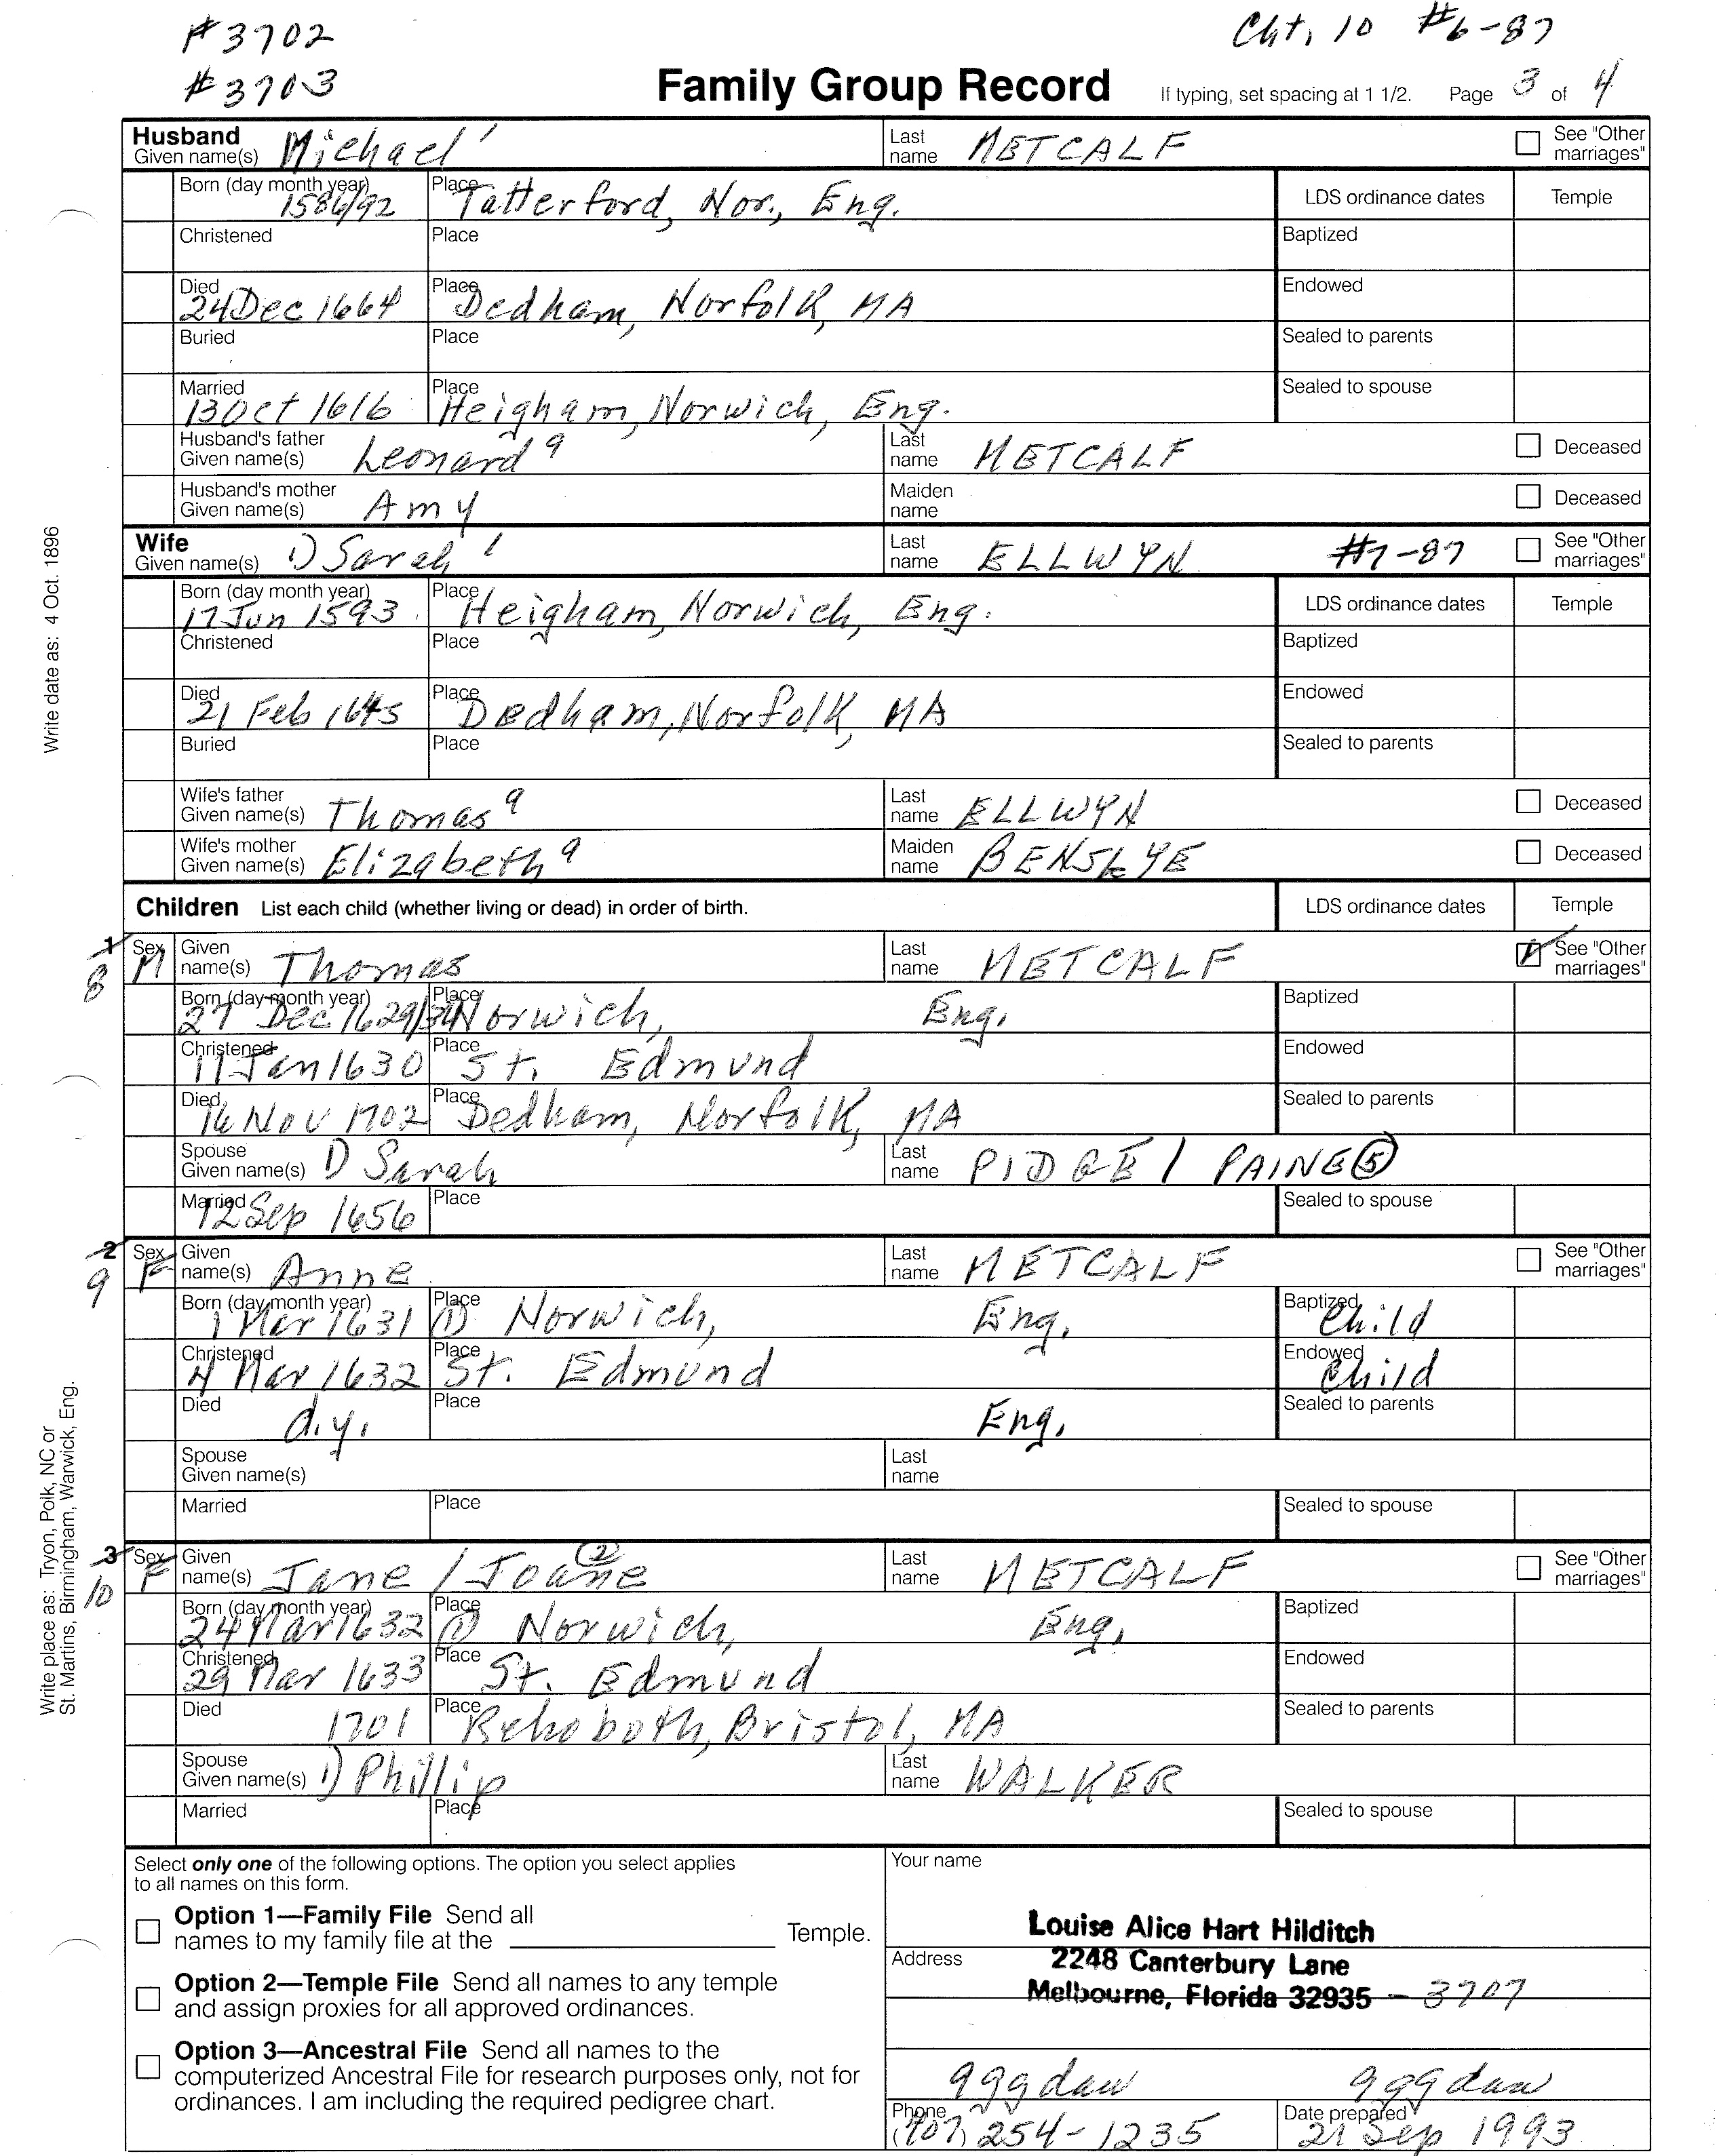 #3702
Cht. 10 #6-87
#3703
Family Group Record
If typing, set spacing at 1 1/2. Page 3 of 4
Husband
Given name(s) Michael ' Last name METCALF See "Other marriages"
Born (day month year) 1586/92 Place Tatterford, Nor., Eng. LDS ordinance dates Temple
Christened Place Baptized
Died 24 Dec 1664 Place Dedham, Norfolk, MA Endowed
Buried Place Sealed to parents
Married 13 Oct 1616 Place Heigham, Norwich, Eng. Sealed to spouse
Husband's father Given name(s) Leonard 9 Last name METCALF Deceased
Husband's mother Given name(s) Amy Maiden name Deceased
Wife
Given name(s) 1) Sarah ' Last name ELLWYN #7-87 See "Other marriages"
Born (day month year) 17 Jun 1593 Place Heigham, Norwich, Eng. LDS ordinance dates Temple
Christened Place Baptized
Died 21 Feb 1645 Place Dedham, Norfolk, MA Endowed
Buried Place Sealed to parents
Wife's father Given name(s) Thomas 9 Last name ELLWYN Deceased
Wife's mother Given name(s) Elizabeth 9 Maiden name BENSLYE Deceased
Children List each child (whether living or dead) in order of birth. LDS ordinance dates Temple
1 8 Sex M Given name(s) Thomas Last name METCALF See "Other marriages"
Born (day month year) 27 Dec 1629/ Place Norwich, Eng. Baptized
Christened 11 Jan 1630 Place St. Edmund Endowed
Died 16 Nov 1702 Place Dedham, Norfolk, MA Sealed to parents
Spouse Given name(s) 1) Sarah Last name PIDGE / PAINE (5)
Married 12 Sep 1656 Place Sealed to spouse
2 9 Sex F Given name(s) Anne Last name METCALF See "Other marriages"
Born (day month year) 1 Mar 1631 Place (1) Norwich, Eng. Baptized Child
Christened 4 Mar 1632 Place St. Edmund Endowed Child
Died d.y. Place Eng. Sealed to parents
Spouse Given name(s) Last name
Married Place Sealed to spouse
3 10 Sex F Given name(s) Jane / Joane (2) Last name METCALF See "Other marriages"
Born (day month year) 24 Mar 1632 Place (1) Norwich, Eng. Baptized
Christened 29 Mar 1633 Place St. Edmund Endowed
Died 1701 Place Rehoboth, Bristol, MA Sealed to parents
Spouse Given name(s) 1) Phillip Last name WALKER
Married Place Sealed to spouse
Select only one of the following options. The option you select applies
to all names on this form.
Option 1—Family File Send all
names to my family file at the Temple.
Option 2—Temple File Send all names to any temple
and assign proxies for all approved ordinances.
Option 3—Ancestral File Send all names to the
computerized Ancestral File for research purposes only, not for
ordinances. I am including the required pedigree chart.
Your name
Louise Alice Hart Hilditch
Address
2248 Canterbury Lane
Melbourne, Florida 32935 - 3707
9ggdau 9ggdau
Phone (407) 254-1235 Date prepared 21 Sep 1993
Write date as: 4 Oct. 1896
Write place as: Tryon, Polk, NC or
St. Martins, Birmingham, Warwick, Eng.